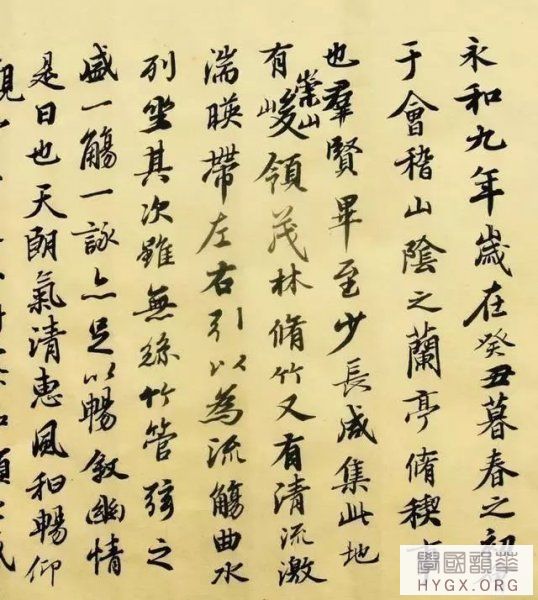 永和九年歲在癸丑暮春之初
于會稽山陰之蘭亭脩稧
也羣賢畢至少長咸集此地
有崇山峻領茂林脩竹又有清流激
湍暎帶左右引以為流觴曲水
列坐其次雖無絲竹管弦之
盛一觴一詠亦足以暢敘幽情
是日也天朗氣清惠風和暢仰
學國韻華
HYGX.ORG